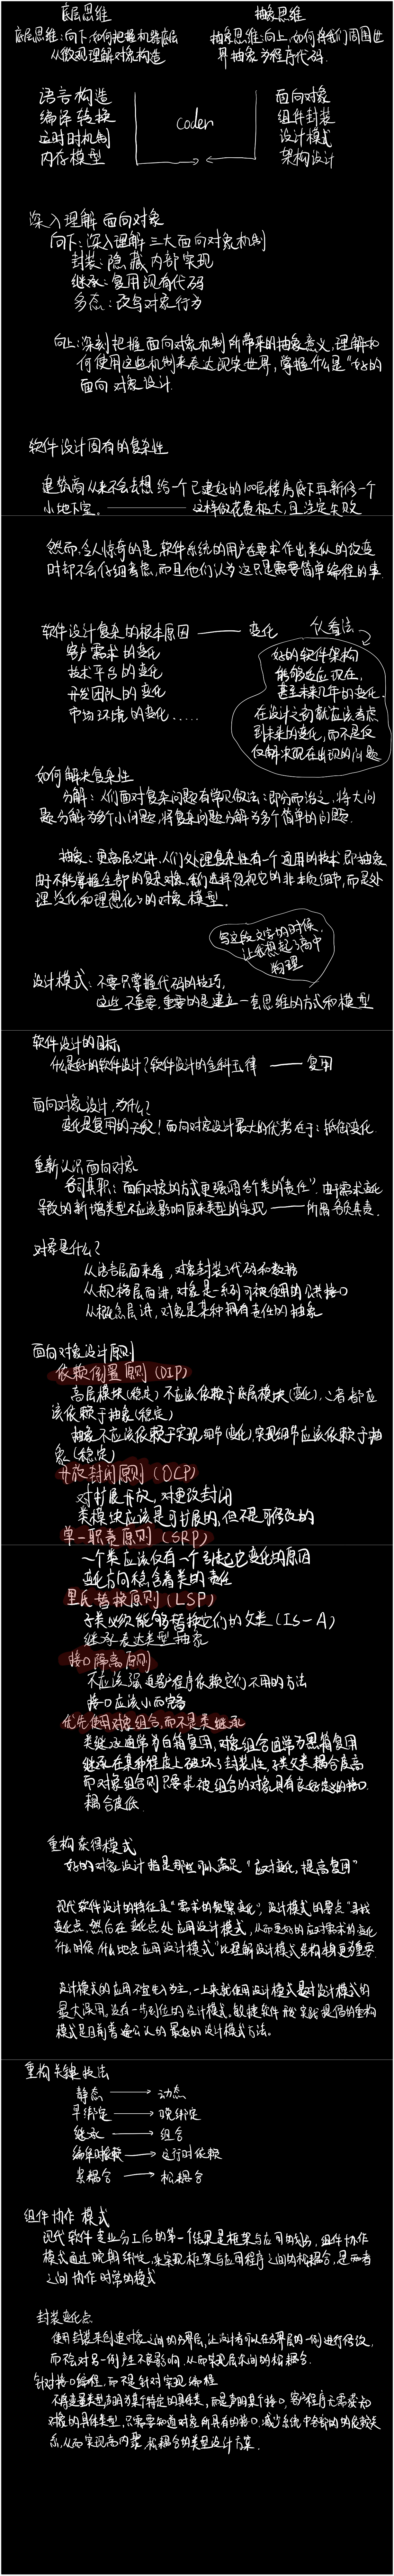 底层思维
抽象思维
底层思维:向下,如何把握机器底层
从微观理解对象构造
抽象思维:向上,如何将我们周围世
界抽象为程序代码.
语言构造
编译转换
运行时机制
内存模型
coder
面向对象
组件封装
设计模式
架构设计
深入理解面向对象
向下:深入理解三大面向对象机制
封装:隐藏内部实现
继承:复用现有代码
多态:改写对象行为
向上:深刻把握面向对象机制所带来的抽象意义,理解如
何使用这些机制来表达现实世界,掌握什么是"好的
面向对象设计
软件设计固有的复杂性
建筑商从来不会去想给一个已建好的100层楼房底下再新修一个
小地下室. —— 这样做花费极大,且注定失败
然而令人惊奇的是,软件系统的用户在要求作出类似的改变
时却不会仔细考虑,而且他们认为这只是需要简单编程的事.
软件设计复杂的根本原因 —— 变化
客户需求的变化
技术平台的变化
开发团队的变化
市场环境的变化.....
个人看法
好的软件架构
能够适应现在,
甚至未来几年的变化.
在设计之初就应该考虑
到未来的变化,而不是仅
仅解决现在出现的问题
如何解决复杂性
分解:人们面对复杂问题有常见做法:即分而治之,将大问
题分解为多个小问题,将复杂问题分解为多个简单的问题.
抽象:更高层次讲,人们处理复杂性有一个通用的技术,即抽象
由于不能掌握全部的复杂对象,我们选择忽视它的非本质细节,而是处
理泛化和理想化了的对象模型.
写这段文字的时候,
让我想起了高中
物理
设计模式:不要只掌握代码的技巧,
这些不重要,重要的是建立一套思维的方式和模型
软件设计的目标
什么是好的软件设计?软件设计的金科玉律 —— 复用
面向对象设计,为什么?
变化是复用的天敌!面向对象设计最大的优势在于:抵御变化
重新认识面向对象
各司其职:面向对象的方式更强调各个类的"责任".由于需求变化
导致的新增类型不应该影响原来类型的实现 —— 所谓各负其责.
对象是什么?
从语言层面来看,对象封装了代码和数据
从规格层面讲,对象是一系列可被使用的公共接口
从概念层讲,对象是某种拥有责任的抽象
面向对象设计原则
依赖倒置原则(DIP)
高层模块(稳定)不应该依赖于底层模块(变化),二者都应
该依赖于抽象(稳定)
抽象不应该依赖于实现细节(变化),实现细节应该依赖于抽
象(稳定)
开放封闭原则(OCP)
对扩展开放,对更改封闭
类模块应该是可扩展的,但不是可修改的
单一职责原则(SRP)
一个类应该仅有一个引起它变化的原因
变化方向隐含着类的责任
里氏替换原则(LSP)
子类必须能够替换它们的父类(IS-A)
继承表达类型抽象
接口隔离原则
不应该强迫客户程序依赖它们不用的方法
接口应该小而完备
优先使用对象组合,而不是类继承
类继承通常为白箱复用,对象组合通常为黑箱复用
继承在某种程度上破坏了封装性,子类父类耦合度高
而对象组合则只要求被组合的对象具有良好定义的接口.
耦合度低.
重构获得模式
好的对象设计指是那些可以满足"应对变化,提高复用"
现代软件设计的特征是"需求的频繁变化",设计模式的要点"寻找
变化点,然后在变化点处应用设计模式,从而更好的应对需求的变化
"什么时候,什么地点应用设计模式"比理解设计模式结构本身更重要.
设计模式的应用不宜先入为主,一上来就使用设计模式是对设计模式的
最大误用.没有一步到位的设计模式,敏捷软件开发实践提倡的重构
模式是目前普遍公认的最好的设计模式方法.
重构关键技法
静态 → 动态
早绑定 → 晚绑定
继承 → 组合
编译时依赖 → 运行时依赖
紧耦合 → 松耦合
组件协作模式
现代软件专业分工后的第一个结果是框架与应用的划分,组件协作
模式通过晚期绑定,来实现框架与应用程序之间的松耦合,是两者
之间协作时常的模式
封装变化点
使用封装来创建对象之间的分界层,让设计者可以在分界层的一侧进行修改,
而不会对另一侧产生不良影响.从而实现层次间的松耦合.
针对接口编程,而不是针对实现编程
不将变量类型声明为某个特定的具体类,而是声明为某个接口,客户程序无需获知
对象的具体类型,只需要知道对象所具有的接口,减少系统中各部分的依赖关
系,从而实现高内聚 松耦合的类型设计方案.